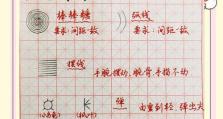 棒棒糖 弧线
要求：间距一致 要求：间距一致
摆线
手腕摆动，腕背、手指不动
弹
由重到轻，弹出去